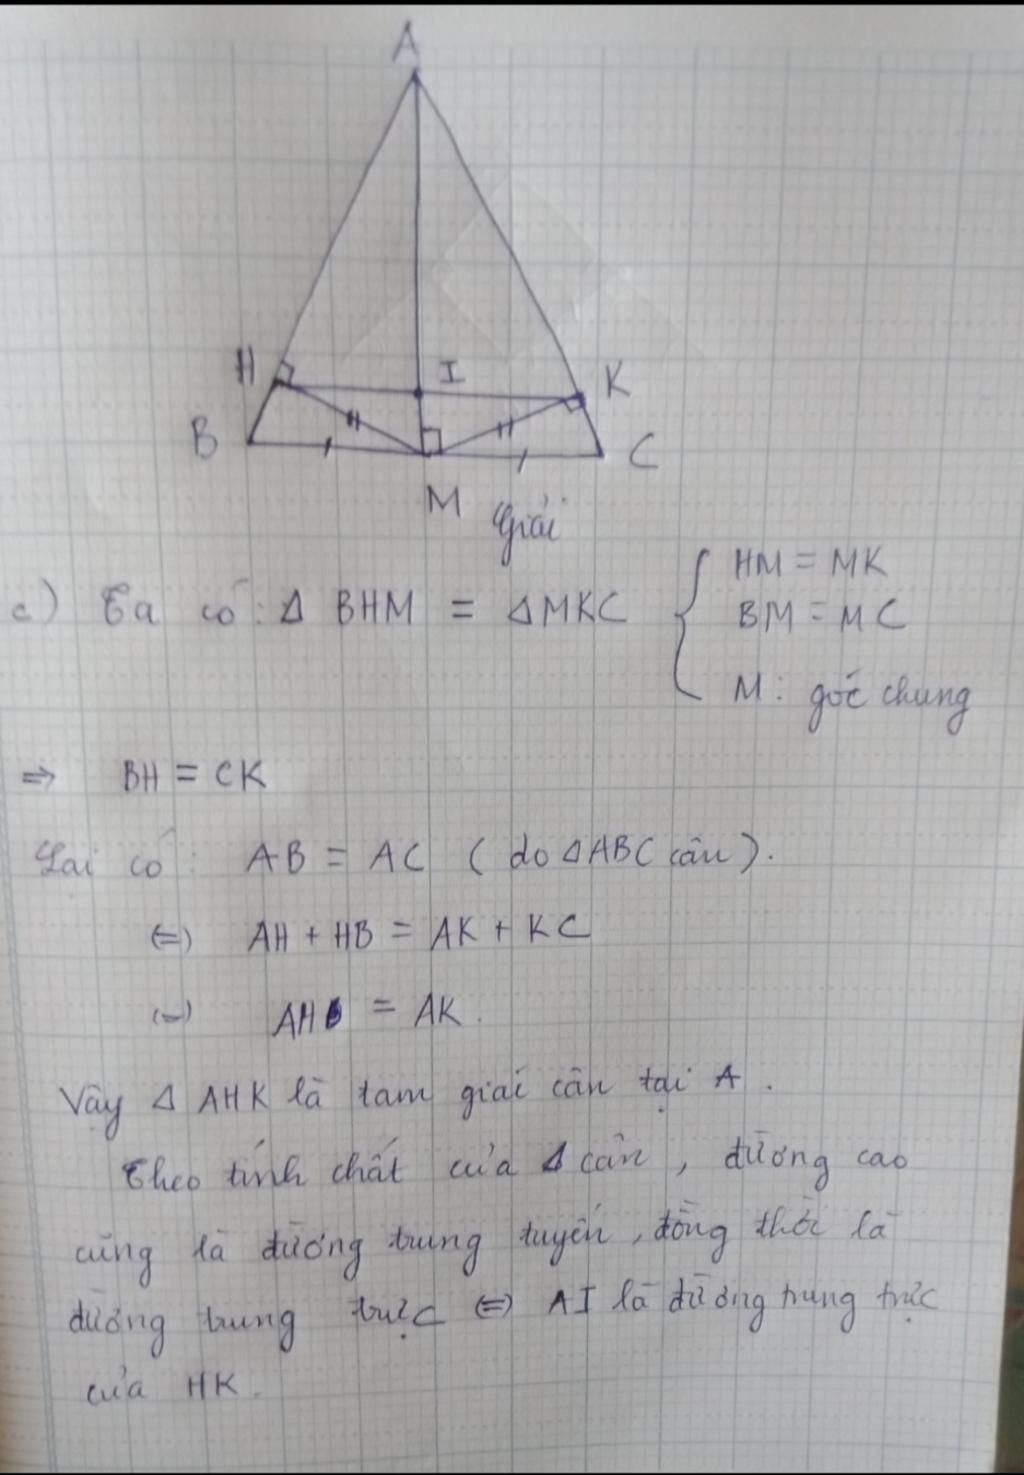 A
H
I
K
B
C
M
Giải
c) Ta có: Δ BHM = ΔMKC { HM = MK
BM = MC
M: góc chung
⇒ BH = CK
Lại có: AB = AC (do ΔABC cân).
⇔ AH + HB = AK + KC
⇔ AH = AK.
Vậy Δ AHK là tam giác cân tại A.
Theo tính chất của Δ cân, đường cao
cũng là đường trung tuyến, đồng thời là
đường trung trực ⇔ AI là đường trung trực
của HK.